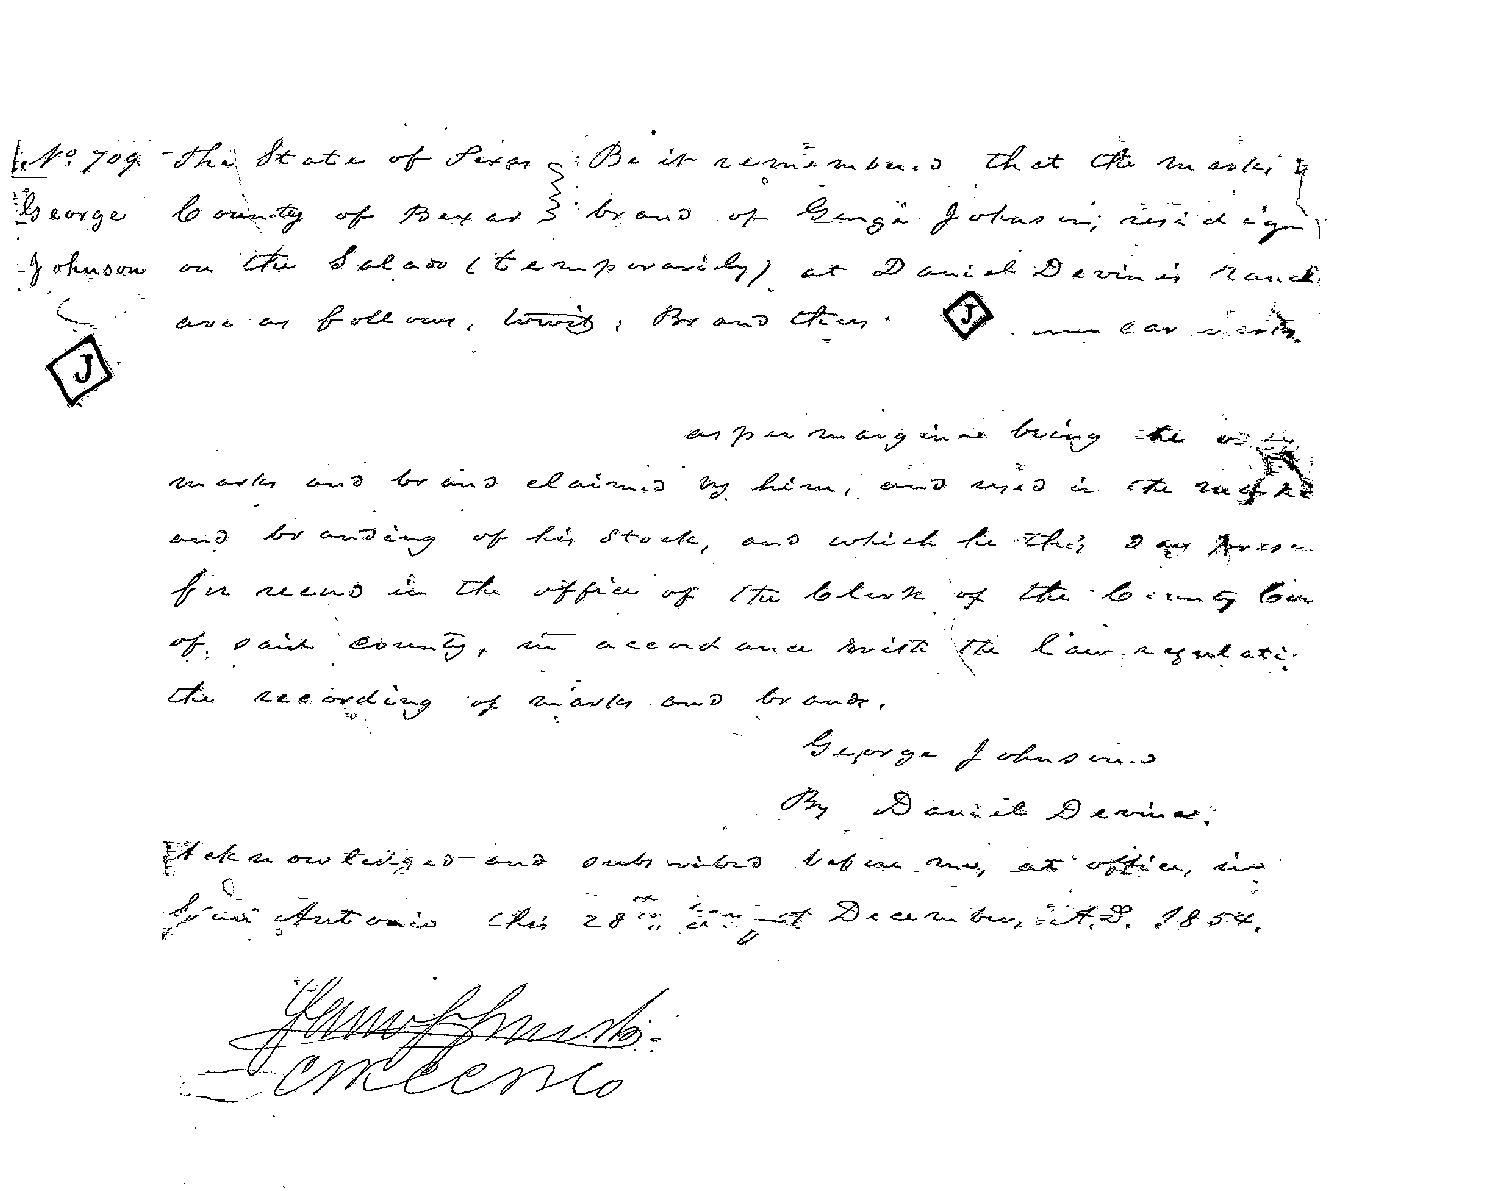 No. 709 The State of Texas Be it remembered that the marks &
George County of Bexar brand of George Johnson, residing
Johnson on the Salado (temporarily) at Daniel Devine's ranch
are as follows, towit: Brand thus J ear marks.
J
as per margin being the
marks and brand claimed by him, and used in the
and branding of his stock, and which he this day
for record in the office of the Clerk of the County
of said county, in accordance with the law
the recording of marks and brands.
George Johnson
By Daniel Devine.
Acknowledged and subscribed before me, at office, in
San Antonio this 28th day of December, A.D. 1854.